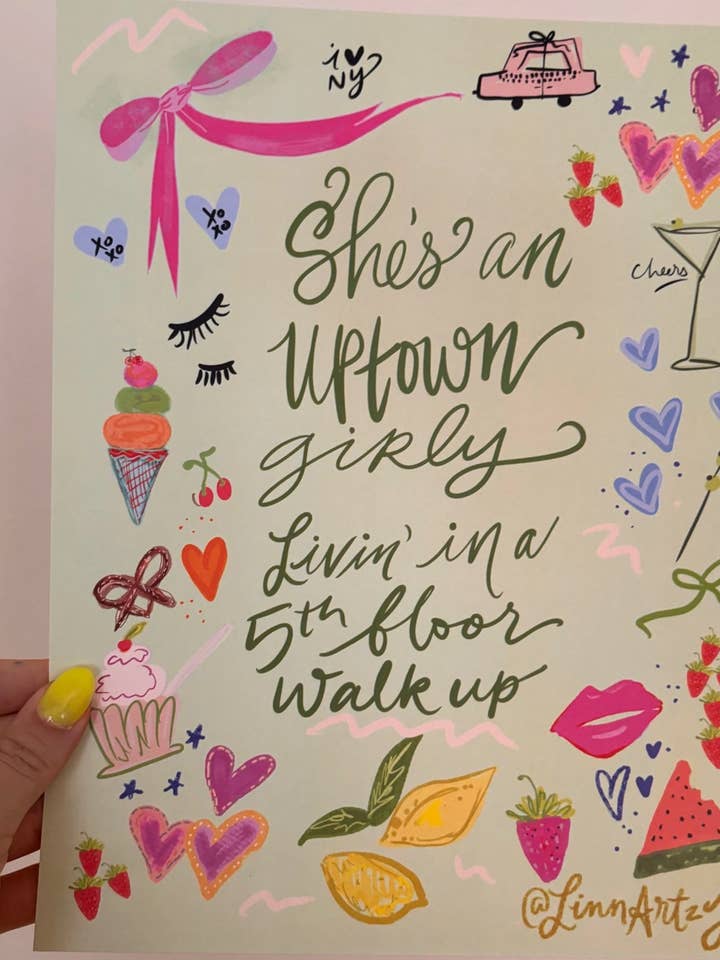 i ♥
NY
xo
xo
xo
xo
She's an
Cheers
Uptown
girly
Livin' in a
5th floor
walk up
@LinnArtzy